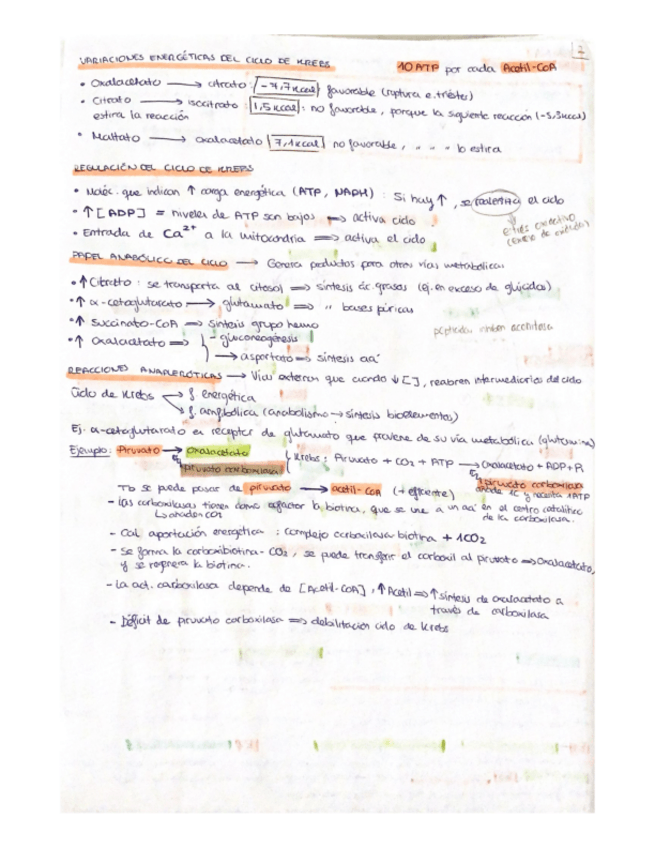 2
VARIACIONES ENERGÉTICAS DEL CICLO DE KREBS 10 ATP por cada Acetil-CoA
• Oxalacetato → citrato: -7,7 kcal favorable (ruptura e. tiéster)
• Citrato → isocitrato: 1,5 kcal: no favorable, porque la siguiente reacción (-5,3 kcal)
estira la reacción
• Maltato → oxalacetato 7,1 kcal no favorable, " " " lo estira
REGULACIÓN DEL CICLO DE KREBS
• Moléc. que indican ↑ carga energética (ATP, NADH): Si hay ↑, se ralentiza el ciclo
• ↑ [ADP] = niveles de ATP son bajos ⇒ activa ciclo
estrés oxidativo
• Entrada de Ca²⁺ a la mitocondria ⇒ activa el ciclo
PAPEL ANABÓLICO DEL CICLO → Genera productos para otras vías metabólicas
• ↑ Citrato: se transporta al citosol ⇒ síntesis ác. grasos (ej. en exceso de glúcidos)
• ↑ α-cetoglutarato → glutamato ⇒ " bases púricas
• ↑ Succinato-CoA ⇒ síntesis grupo hemo
• ↑ Oxalacetato ⇒ - gluconeogénesis
→ aspartato ⇒ síntesis aa
REACCIONES ANAPLERÓTICAS → Vías externas que cuando ↓ [ ], reabren intermediarios del ciclo
Ciclo de Krebs → f. energética
→ f. anfibólica (anabolismo → síntesis bioelementos)
Ej. α-cetoglutarato es receptor de glutamato que proviene de su vía metabólica (glutamina)
Ejemplo: Piruvato → oxalacetato
piruvato carboxilasa
Krebs: Piruvato + CO2 + ATP → Oxalacetato + ADP + Pi
piruvato carboxilasa
añade 1C y necesita 1ATP
Tb se puede pasar de piruvato → acetil-CoA (+ eficiente)
- Las carboxilasas tienen como cofactor la biotina, que se une a un aa en el centro catalítico
↳ añaden CO2 de la carboxilasa.
- Cal. aportación energética: complejo carboxilasa biotina + 1CO2
- Se forma la carboxibiotina-CO2, se puede transferir el carboxil al piruvato ⇒ Oxalacetato,
y se regenera la biotina.
- La act. carboxilasa depende de [Acetil-CoA], ↑ Acetil ⇒ ↑ síntesis de oxalacetato a
través de carboxilasa
- Déficit de piruvato carboxilasa ⇒ debilitación ciclo de Krebs